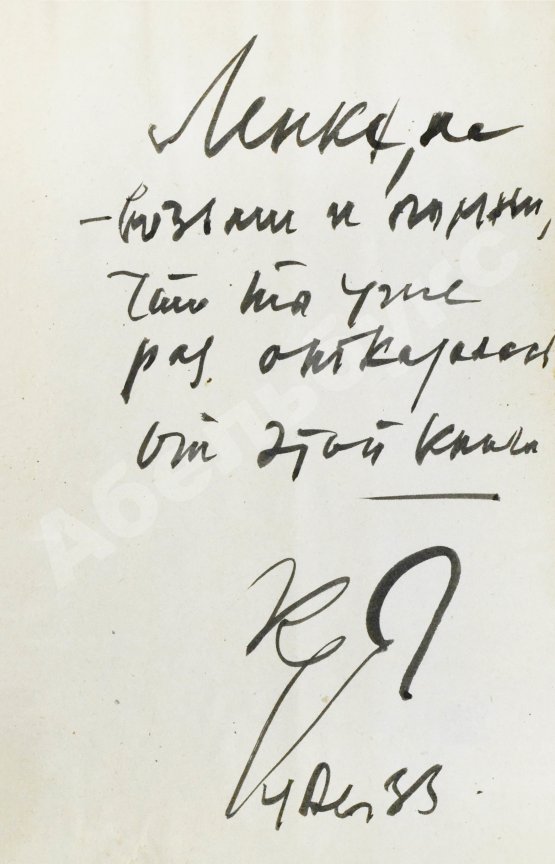 Ленка, на
– возьми и помни,
что ты уже
раз отказалась
от этой книги
КР
4 Дек 33
Абельбукс